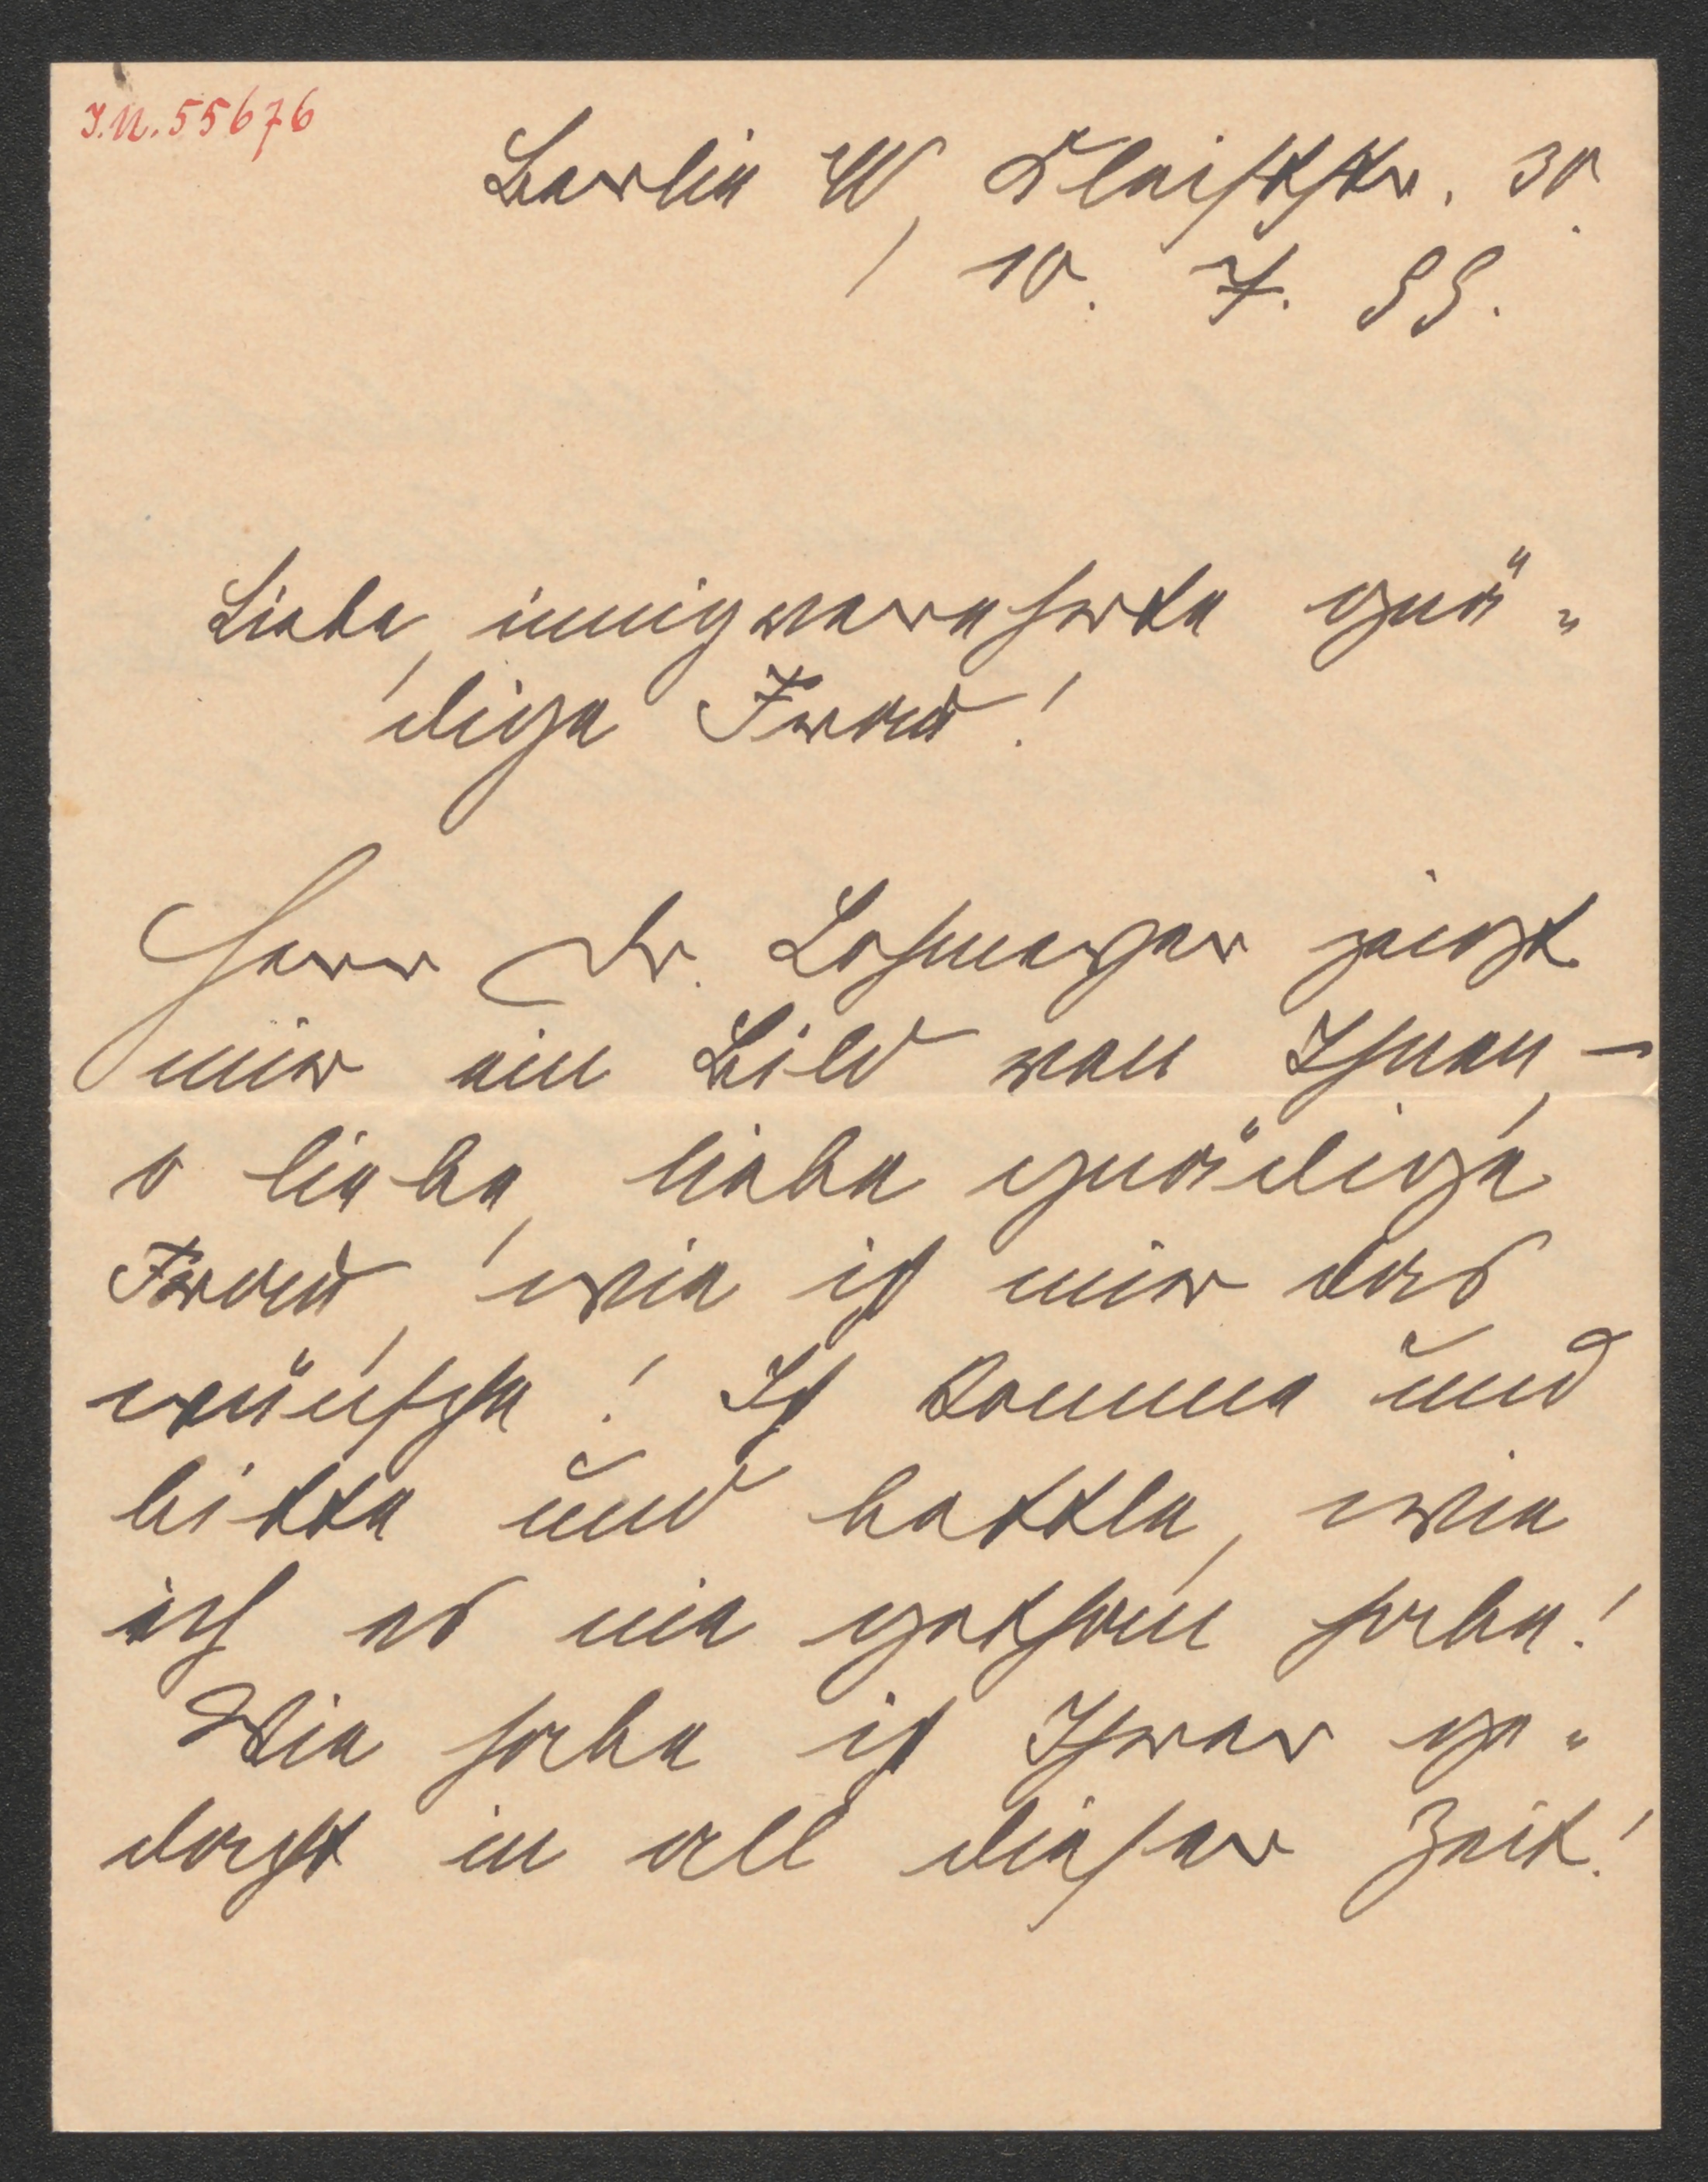 J.N. 55676
Berlin W, Kleiststr. 30.
10. 7. 99.
Liebe, innigverehrte gnä-
dige Frau!
Herr Dr. Lohmeyer zeigt
mir ein Bild von Ihnen, –
o liebe, liebe gnädige
Frau, wie ich mir das
wünsche! Ich komme und
bitte und bettle, wie
ich es nie gethan habe!
Wie habe ich Ihrer ge-
dacht in all dieser Zeit!